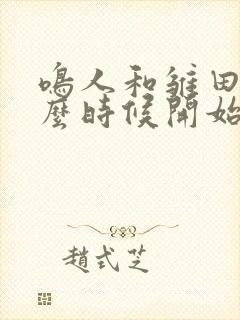 鳴人和雛田
麼時候開始
趙式芝